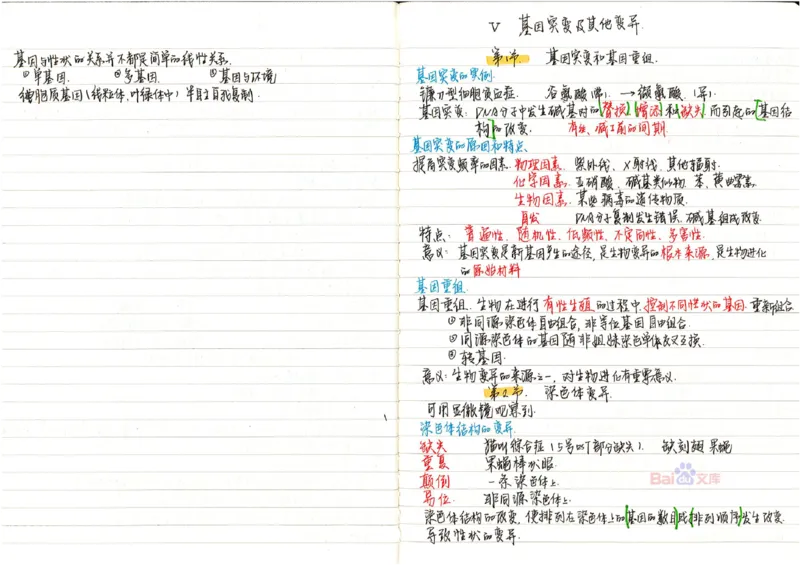 基因与性状的关系并不都是简单的线性关系.
①单基因. ②多基因. ③基因与环境
细胞质基因(线粒体、叶绿体中) 半自主自我复制.
V 基因突变及其他变异.
第1节. 基因突变和基因重组.
基因突变的实例.
镰刀型细胞贫血症. 谷氨酸(常). → 缬氨酸(异).
基因突变: DNA分子中发生碱基对的[替换][增添]和[缺失]而引起的[基因结
构]的改变. 有丝、减Ⅰ前的间期.
基因突变的原因和特点、
提高突变频率的因素. 物理因素. 紫外线、X射线、其他辐射.
化学因素. 亚硝酸、碱基类似物 苯、黄曲霉素.
生物因素. 某些病毒的遗传物质.
自发 DNA分子复制发生错误、碱基组成改变.
特点: 普遍性、随机性、低频性、不定向性、多害性.
意义: 基因突变是新基因产生的途径, 是生物变异的根本来源, 是生物进化
的原始材料
基因重组.
基因重组. 生物在进行有性生殖的过程中, 控制不同性状的基因. 重新组合
①非同源染色体自由组合, 非等位基因自由组合.
②同源染色体的基因随非姐妹染色单体交叉互换.
③转基因.
意义: 生物变异的来源之一, 对生物进化有重要意义.
第2节. 染色体变异.
可用显微镜观察到.
染色体结构的变异.
缺失 猫叫综合征(5号以丁部分缺失). 缺刻翅果蝇
重复 果蝇棒状眼.
颠倒 一条染色体上.
易位. 非同源染色体上.
染色体结构的改变, 使排列在染色体上的[基因的数目]或[排列顺序]发生改变.
导致性状的变异.
Bai du 文库